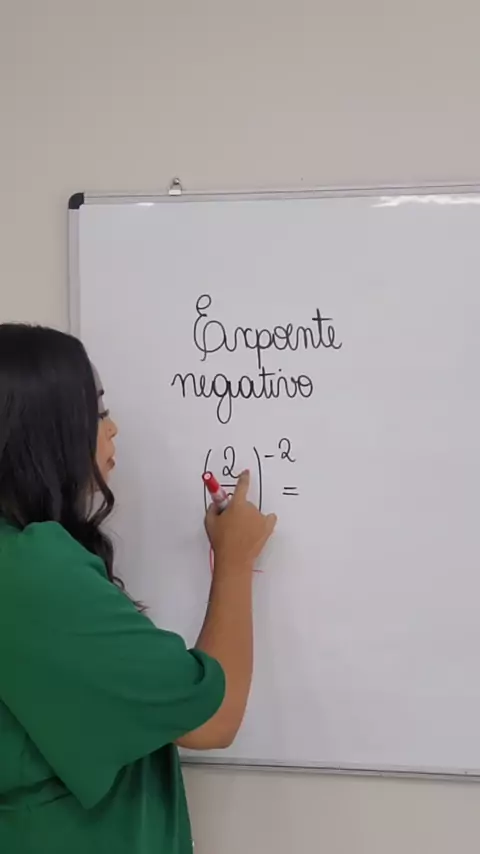 Expoente
negativo
(2)⁻²
=